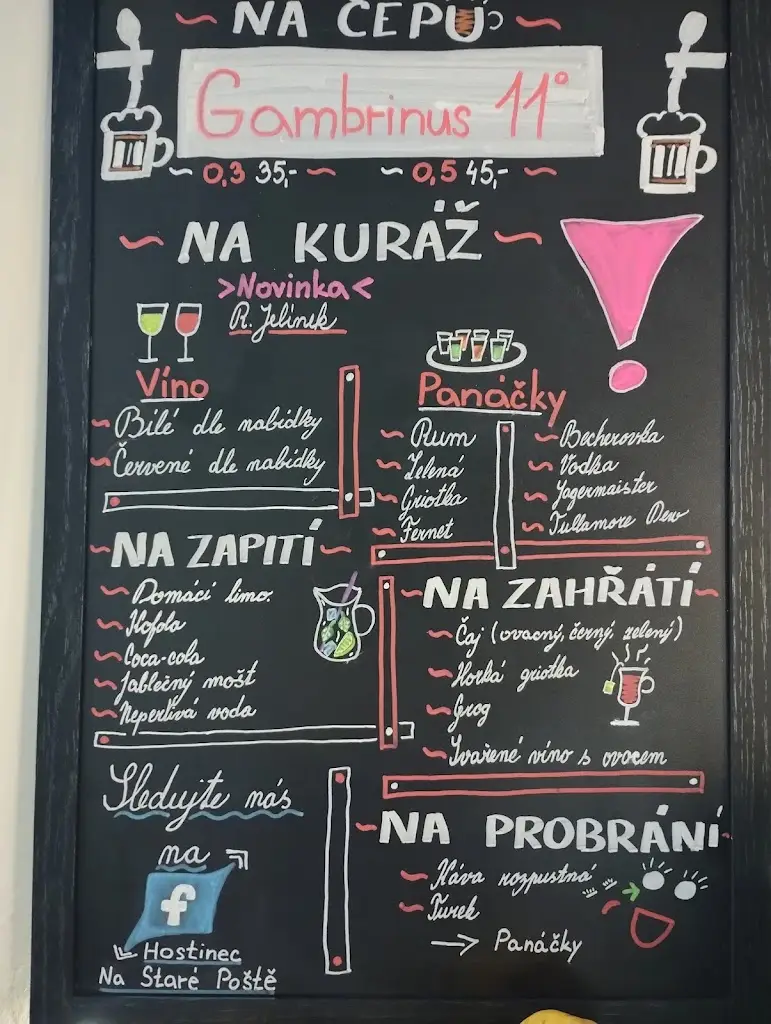 NA ČEPU
Gambrinus 11°
0,3 35,- 0,5 45,-
NA KURÁŽ
>Novinka<
R. Jelínek
Víno
Bílé dle nabídky
Červené dle nabídky
Panáčky
Rum
Zelená
Griotka
Fernet
Becherovka
Vodka
Jagermaister
Tullamore Dew
NA ZAPITÍ
Domácí limo.
Kofola
Coca-cola
Jablečný mošt
Neperlivá voda
NA ZAHŘÁTÍ
Čaj (ovocný, černý, zelený)
Horká griotka
Grog
Svařené víno s ovocem
Sledujte nás
na
f
Hostinec
Na Staré Poště
NA PROBRÁNÍ
Káva rozpustná
Turek
→ Panáčky